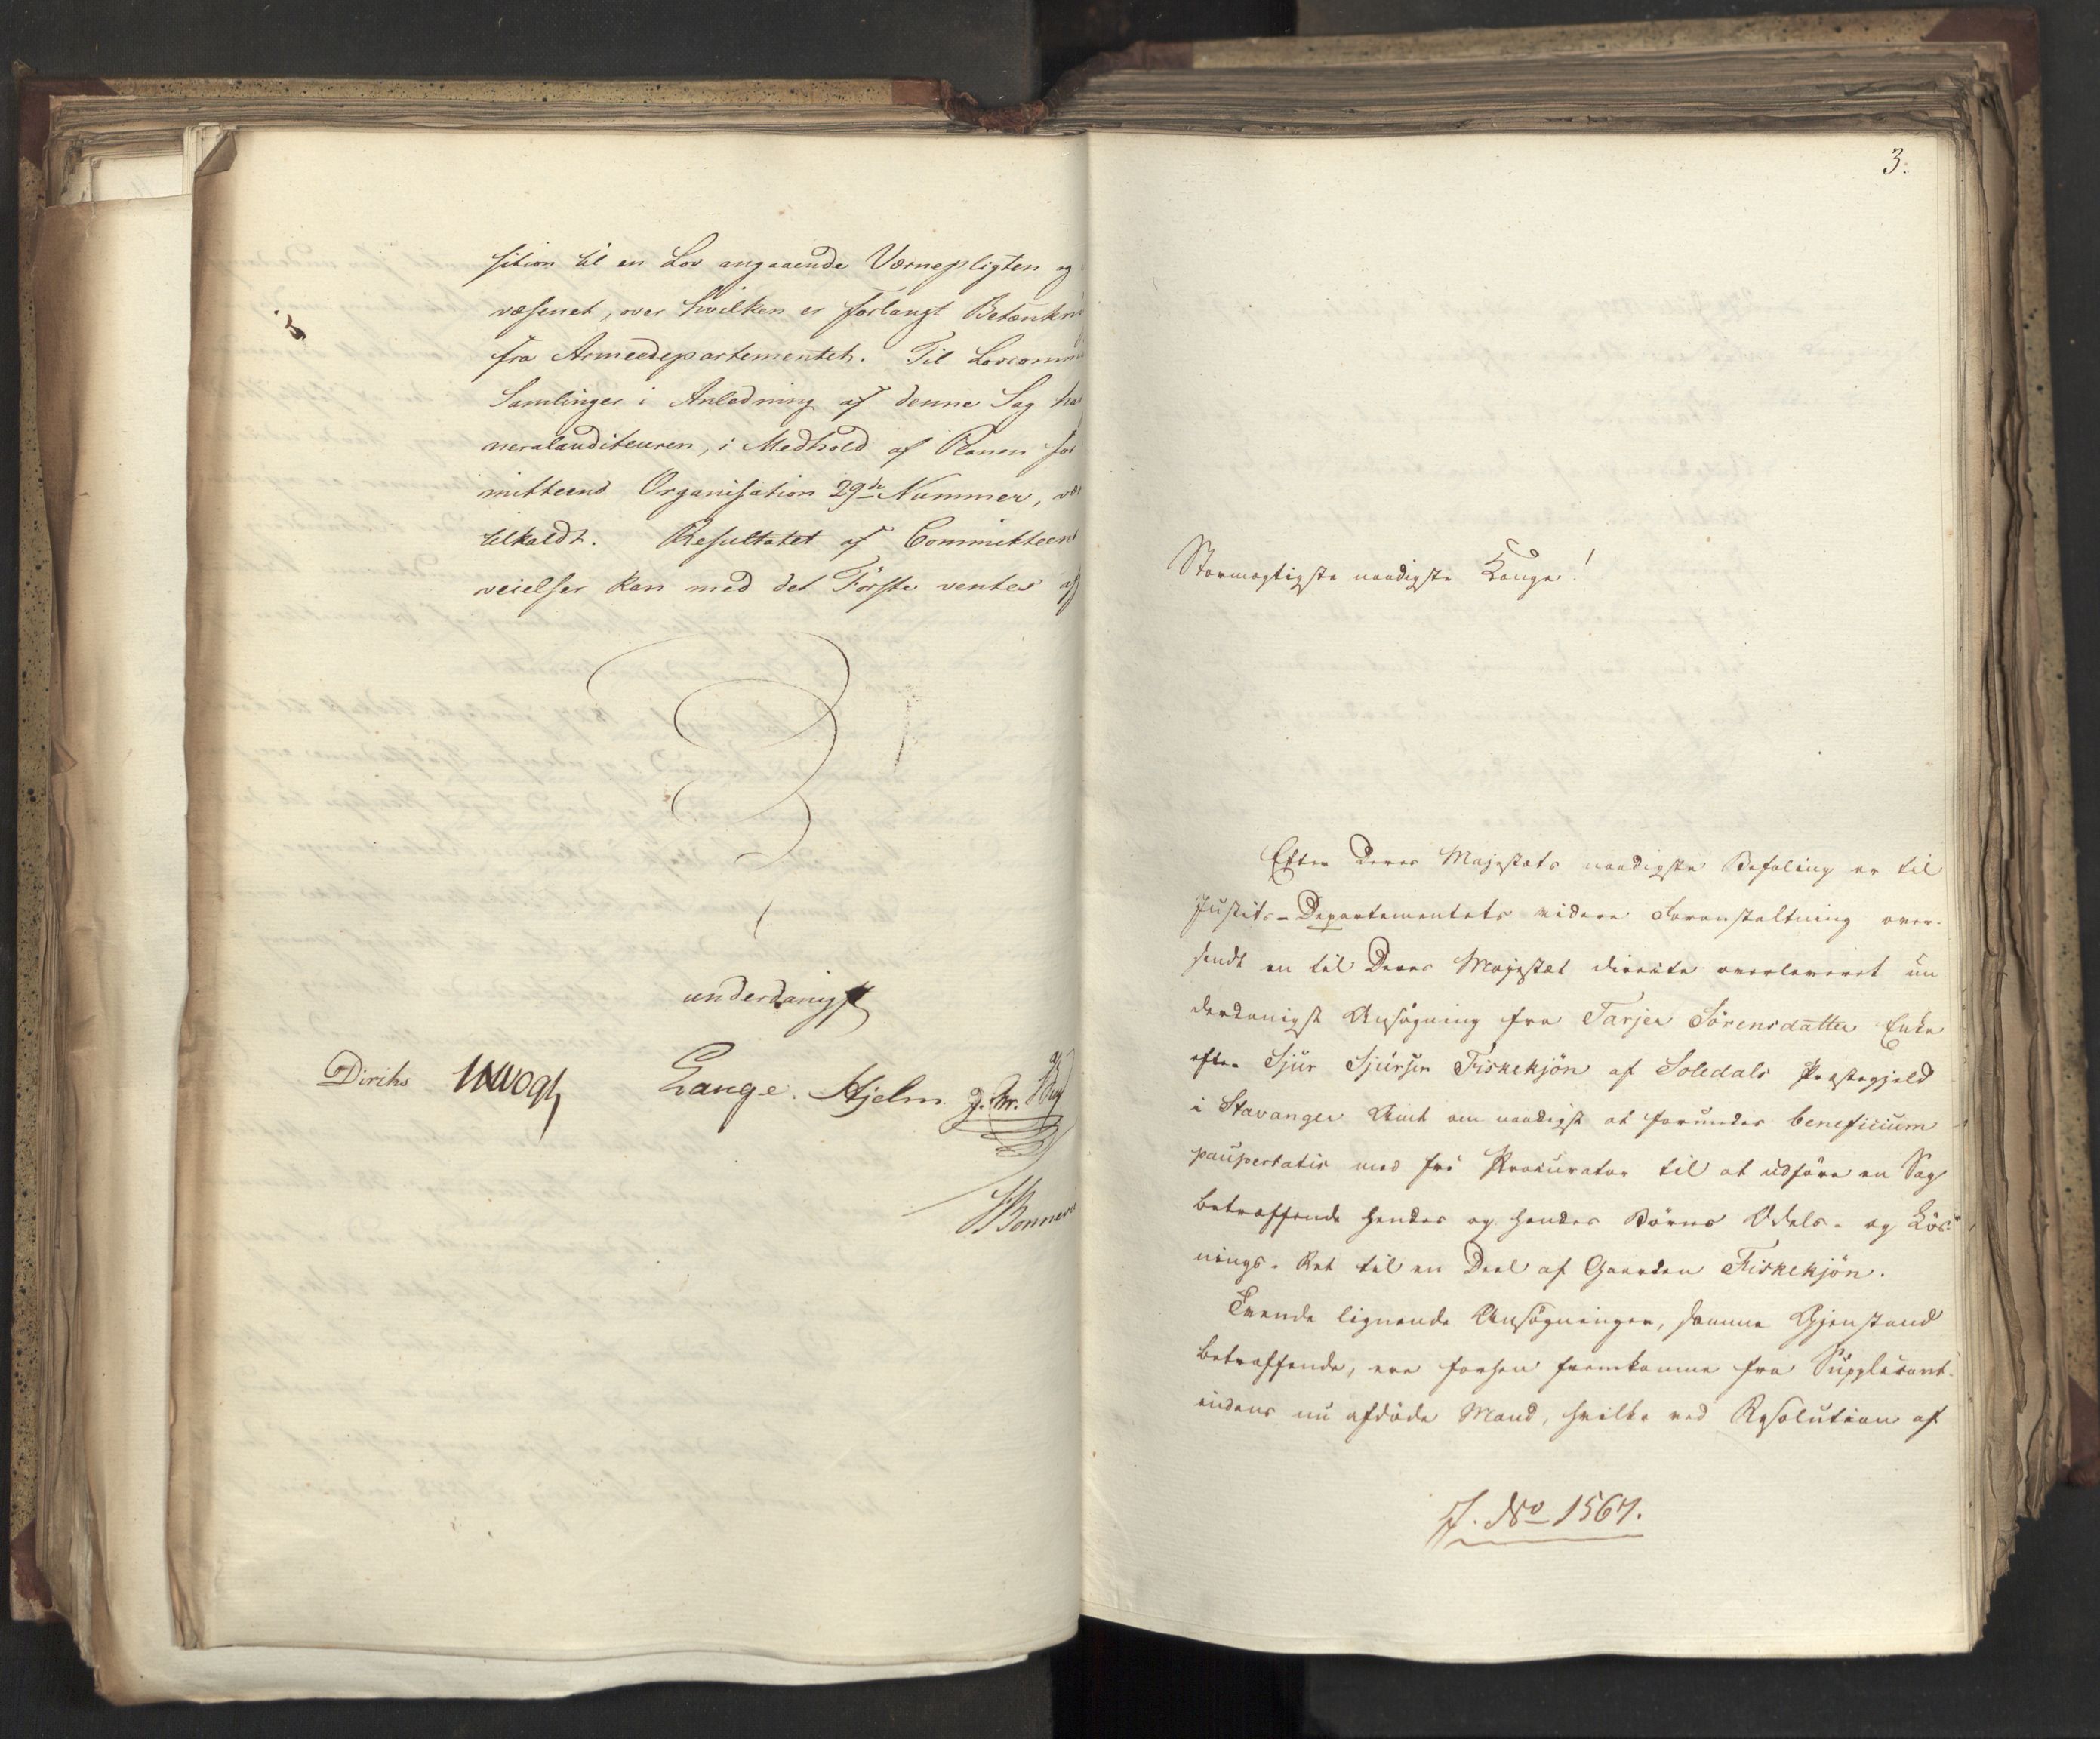 sition til en Lov angaaende Værnepligten og
væsenet, over hvilken er forlangt Betænkni
fra Armeedepartementet. Til Lovcommi
Samlinger i Anledning af denne Sag har
neralauditeuren, i Medhold af Planen for
mitteens Organisation 29de Nummer, vær
tilkaldt. Resultatet af Committeens
veielser kan med det Første ventes af
underdanigst
Diriks Vogt Lange. Hjelm
3.
Stormægtigste naadigste Konge!
Efter Deres Majestæts naadigste Befaling er til
Justits-Departementets videre Foranstaltning over-
sendt en til Deres Majestæt directe overleveret un
derdanigst Ansøgning fra Tarjer Sörensdatter Enke
efter Sjur Sjursen Fiskekjön af Soledals Præstegjeld
i Stavanger Amt om naadigst at forundes beneficium
paupertatis med fri Procurator til at udføre en Sag
betræffende hendes og hendes Børns Odels- og Løs-
nings-Ret til en Deel af Gaarden Fiskekjön.
Tvende lignende Ansøgninger, samme Gjenstand
betræffende, ere forhen fremkomne fra Supplicant-
indens nu afdøde Mand, hvilke ved Resolution af
J. No 1567.